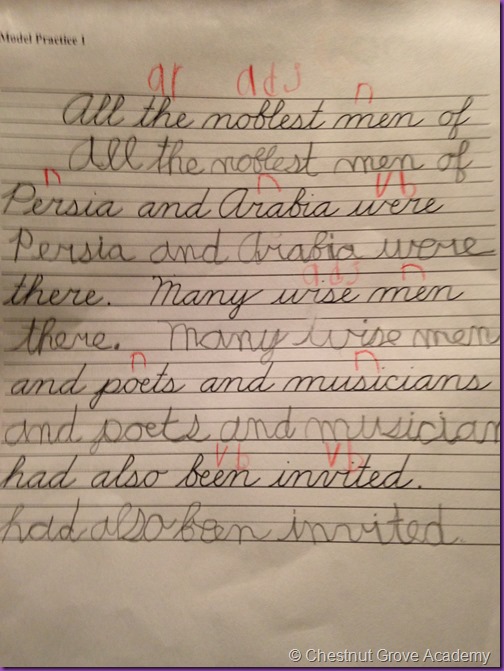 Model Practice 1
ar adj n
All the noblest men of
All the noblest men of
n n vb
Persia and Arabia were
Persia and Arabia were
adj n
there. Many wise men
there. Many wise men
n n
and poets and musicians
and poets and musician
vb vb
had also been invited.
had also been invited.
© Chestnut Grove Academy